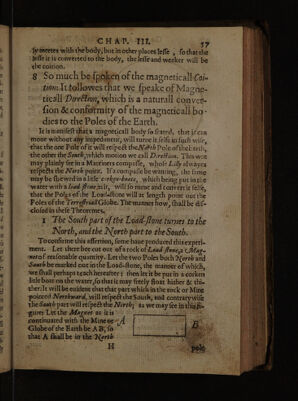 CHAP. III. 57
ly meetes with the body, but in other places lesse, so that the
lesse it is converted to the body, the lesse and weaker will be
the coition.
8 So much be spoken of the magneticall Coi-
tion: It followes that we speake of Magne-
ticall Direction, which is a naturall conver-
sion & conformity of the magneticall bo-
dies to the Poles of the Earth.
It is manifest that a magneticall body so seated, that it can
move without any impediment, will turne it selfe in such wise,
that the one Pole of it will respect the North Pole of the Earth,
the other the South, which motion we call Direction. This we
may plainly see in a Mariners compasse, whose Lilly alwayes
respects the North point. If a compasse be wanting, the same
may be shewed in a little which being put in the
water with a load-stone in it, will so move and convert it selfe,
that the Poles of the Load-stone will at length point out the
Poles of the Terrestriall Globe. The manner how, shall be dis-
closed in these Theoremes.
1 The South part of the Load-stone turnes to the
North, and the North part to the South.
To confirme this assertion, some have produced this experi-
ment. Let there bee cut out of a rock of Load-stone, a Mag-
net of reasonable quantity. Let the two Poles both North and
South be marked out in the Load-stone, the manner of which,
we shall perhaps teach hereafter: then let it be put in a
little boat on the water, so that it may freely float hither & thi-
ther: It will be evident that that part which in the rock or Mine
pointed Northward, will respect the South, and contrarywise
the South part will respect the North; as we may see in this fi-
gure: Let the Magnet as it is
continuated with the Mine or
Globe of the Earth be A B, so
that A shall be in the North
A B
H pole